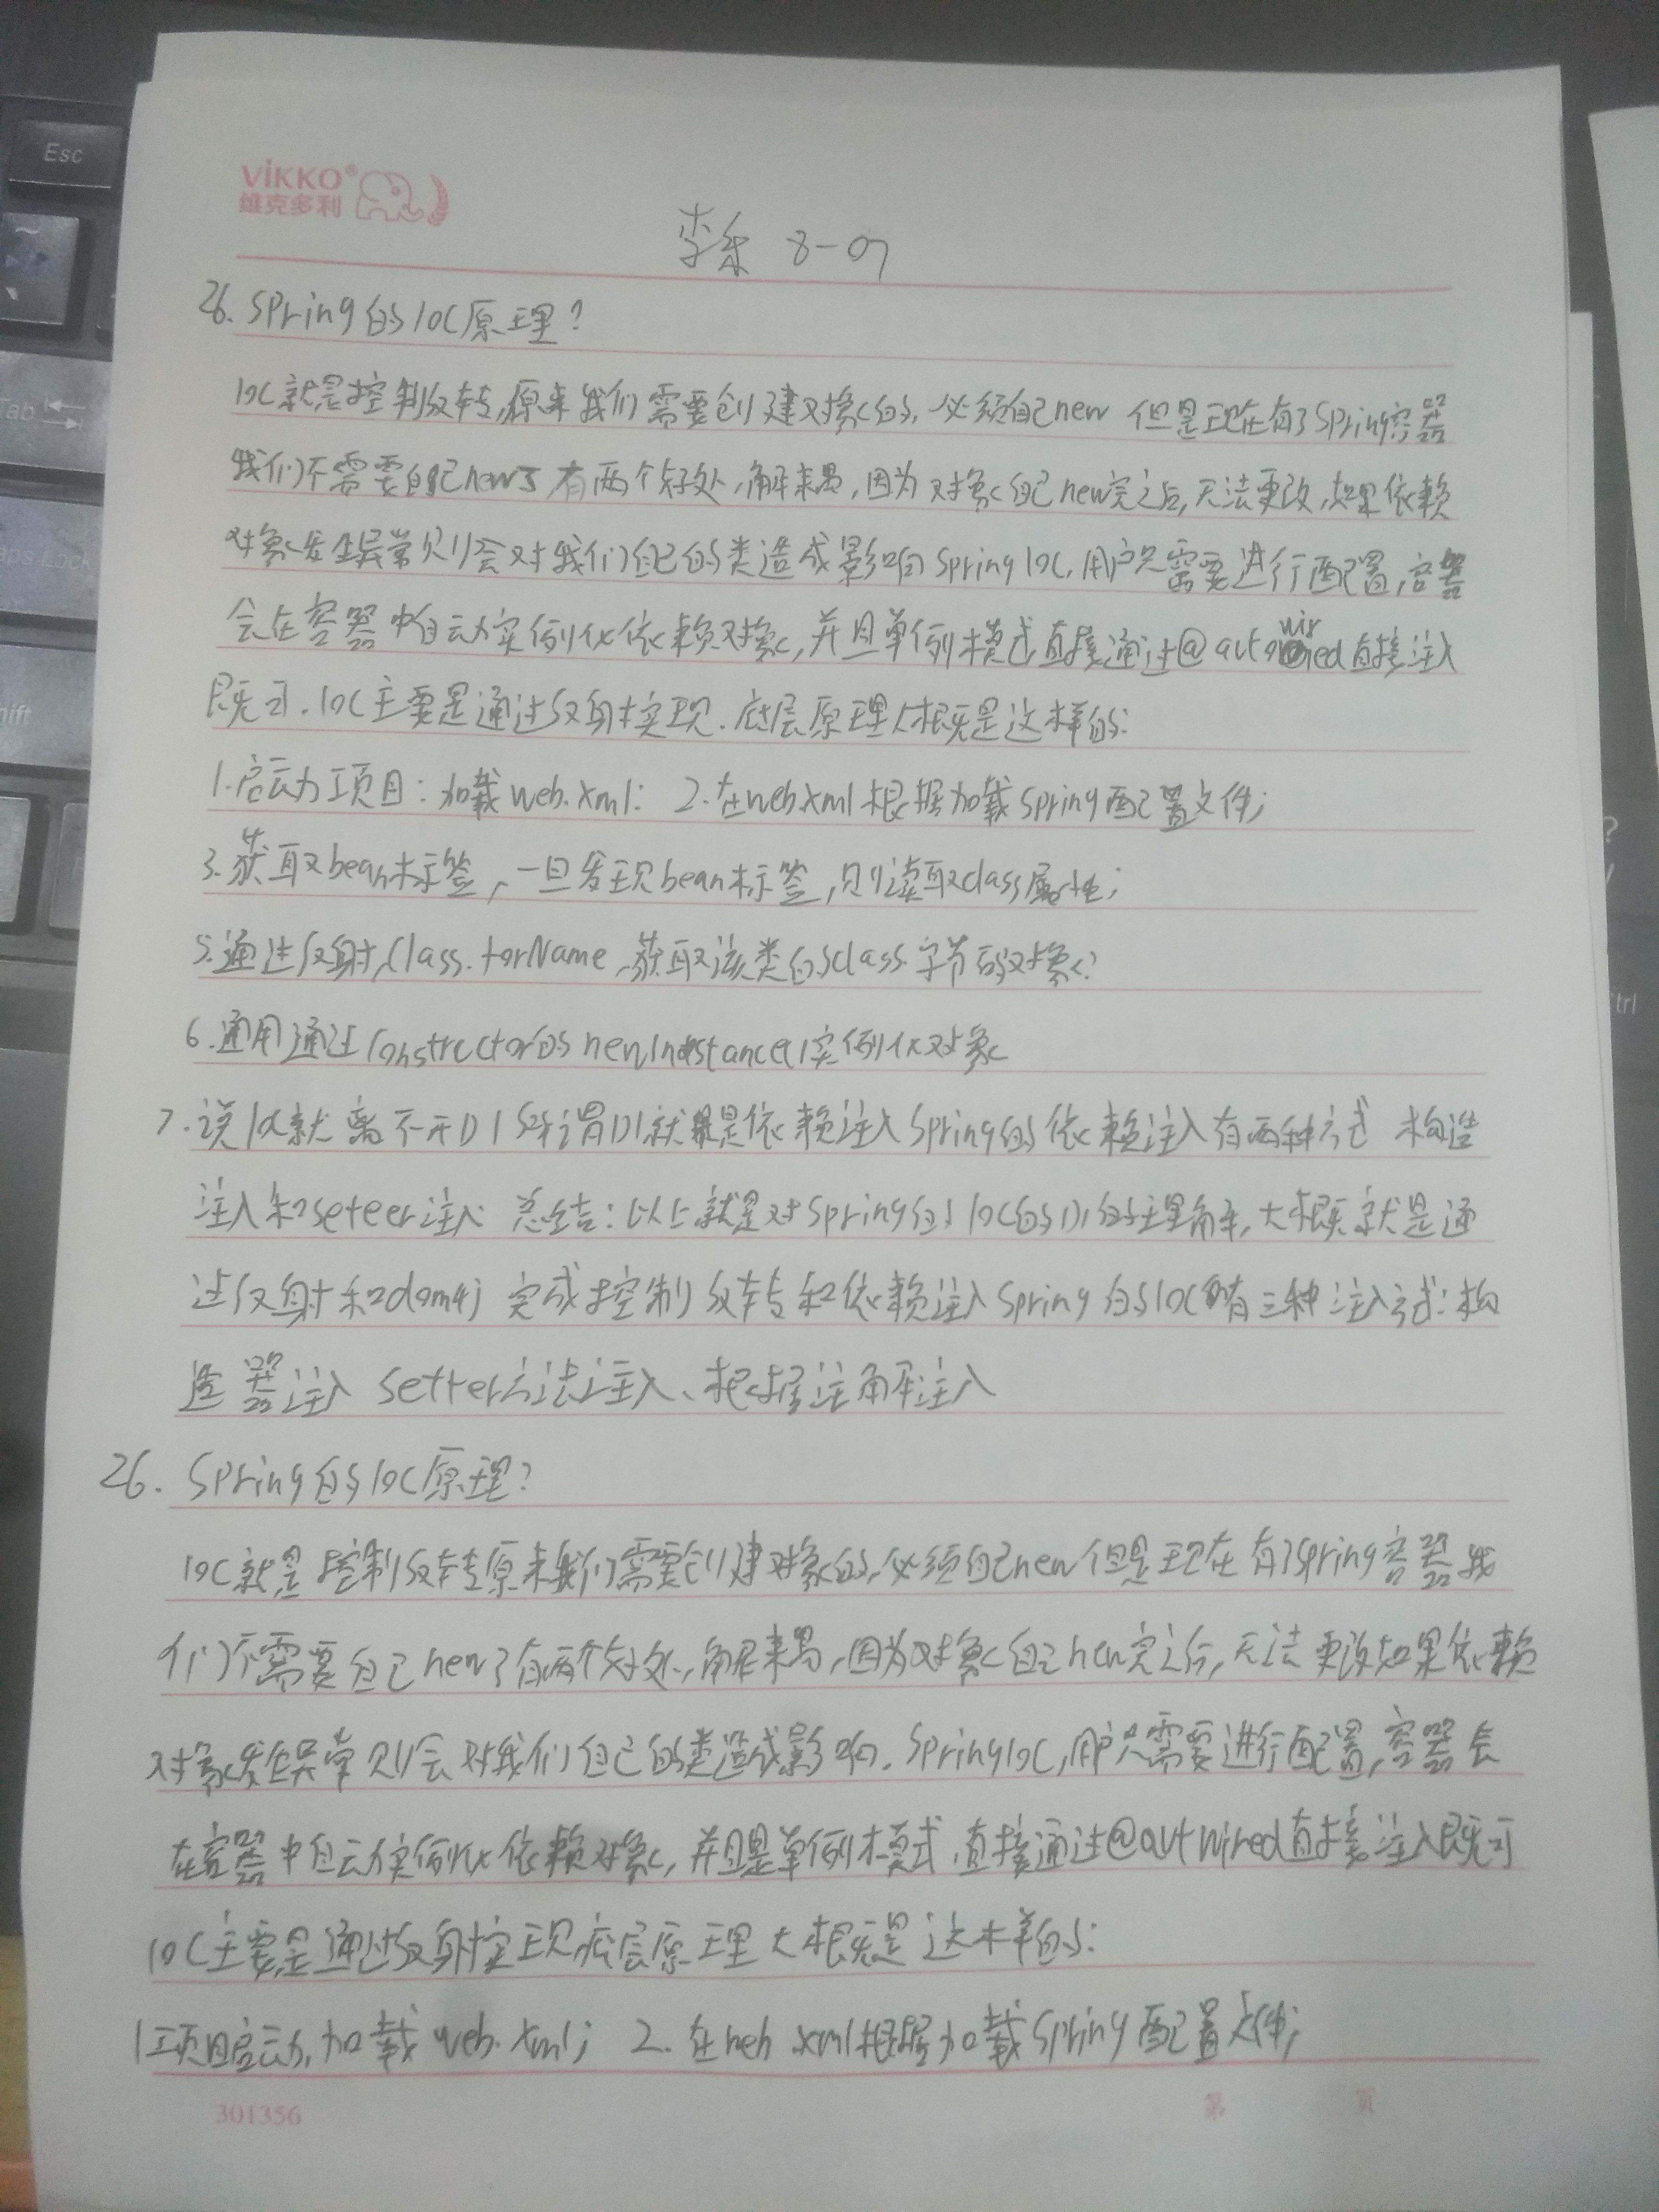 Esc
Tab
aps Lock
hift
?
/
trl
ViKKO®
维克多利
李乐 8-07
26. Spring的IOC原理?
IOC就是控制反转,原来我们需要创建对象的,必须自己new 但是现在有了Spring容器
我们不需要自己new了 有两个好处,解耦,因为对象自己new完之后,无法更改,如果依赖
对象发生异常则会对我们自己的类造成影响Spring IOC,用户只需要进行配置,容器
会在容器中自动实例化依赖对象,并且单例模式直接通过@autowired直接注入
既可.IOC主要是通过反射实现.底层原理大概是这样的:
1.启动项目:加载web.xml: 2.在web.xml根据加载Spring配置文件;
3.获取bean标签,一旦发现bean标签,则读取class属性;
5.通过反射,Class.forName,获取该类的class字节码对象?
6.通用通过Constructor的newInstance()实例化对象
7.说IOC就离不开DI 所谓DI就是依赖注入Spring的依赖注入有两种方式 构造
注入和seteer注入 总结:以上就是对Spring的IOC的DI的理解,大概就是通
过反射和dom4j 完成控制反转和依赖注入Spring的IOC有三种注入方式:构
造器注入 setter方法注入、根据注解注入
26. Spring的IOC原理?
IOC就是控制反转原来我们需要创建对象的,必须自己new但是现在有了Spring容器我
们不需要自己new了有两个好处,解耦,因为对象自己new完之后,无法更改如果依赖
对象发生异常则会对我们自己的类造成影响.SpringIOC,用户只需要进行配置,容器会
在容器中自动实例化依赖对象,并且是单例模式,直接通过@autwired直接注入既可
IOC主要是通过反射实现,底层原理大概是这样的:
1项目启动,加载web.xml; 2.在web.xml根据加载Spring配置文件;
301356
第 页